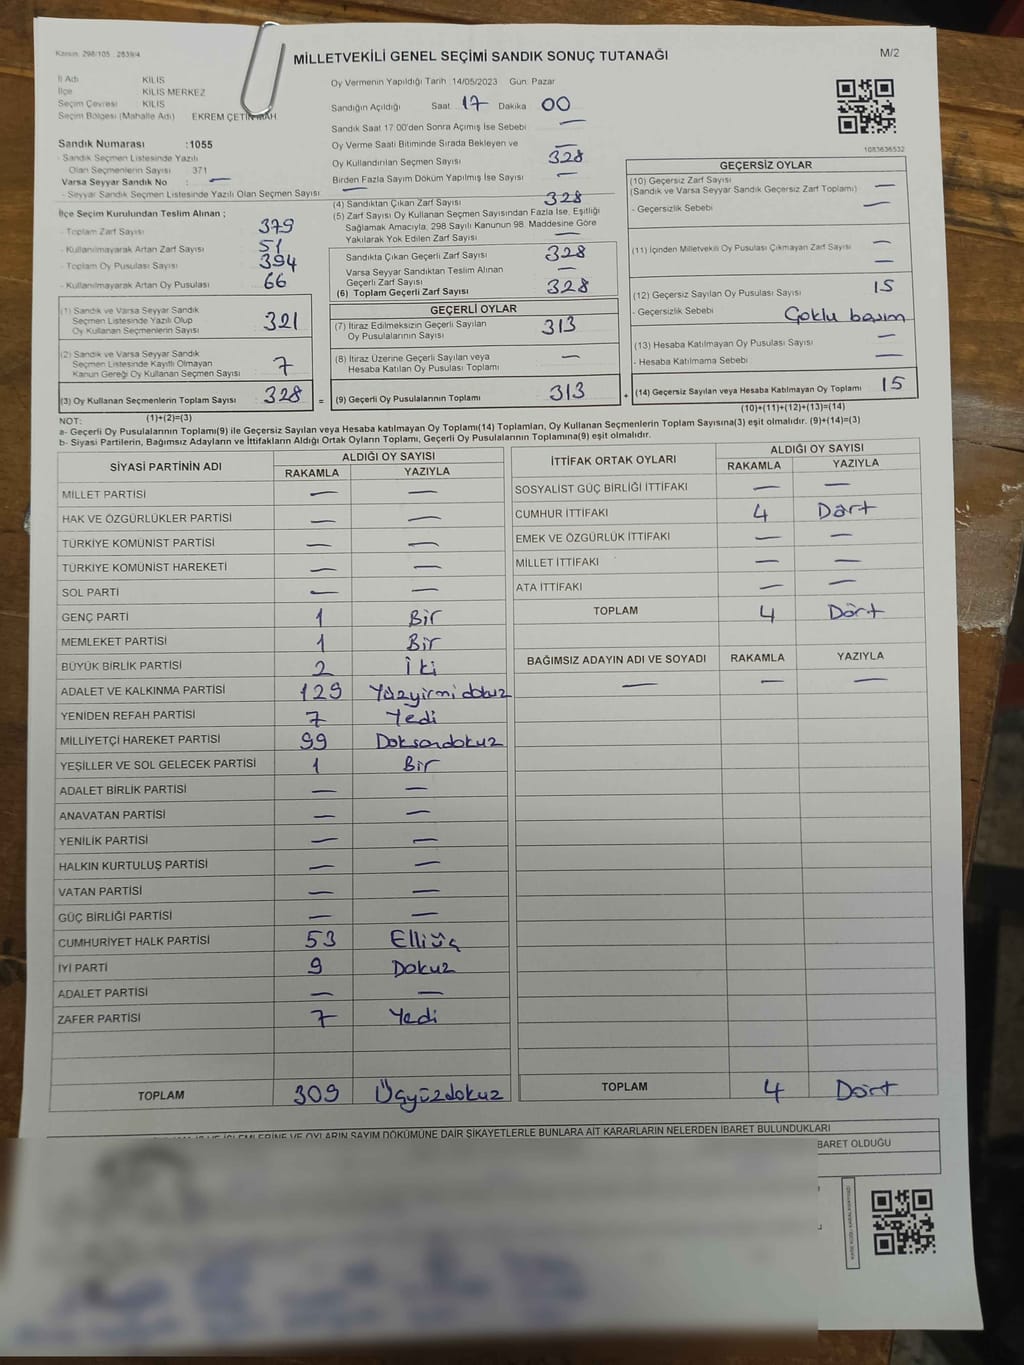 Kanun: 298/105 2839/4
MİLLETVEKİLİ GENEL SEÇİMİ SANDIK SONUÇ TUTANAĞI
M/2
İl Adı KİLİS
İlçe KİLİS MERKEZ
Seçim Çevresi KİLİS
Seçim Bölgesi (Mahalle Adı) EKREM ÇETİN MAH.
Sandık Numarası :1055
- Sandık Seçmen Listesinde Yazılı
Olan Seçmenlerin Sayısı 371
Varsa Seyyar Sandık No : —
- Seyyar Sandık Seçmen Listesinde Yazılı Olan Seçmen Sayısı —
İlçe Seçim Kurulundan Teslim Alınan ;
- Toplam Zarf Sayısı 379
- Kullanılmayarak Artan Zarf Sayısı 51
- Toplam Oy Pusulası Sayısı 394
- Kullanılmayarak Artan Oy Pusulası 66
(1) Sandık ve Varsa Seyyar Sandık
Seçmen Listesinde Yazılı Olup
Oy Kullanan Seçmenlerin Sayısı 321
(2) Sandık ve Varsa Seyyar Sandık
Seçmen Listesinde Kayıtlı Olmayan
Kanun Gereği Oy Kullanan Seçmen Sayısı 7
(3) Oy Kullanan Seçmenlerin Toplam Sayısı 328
(1)+(2)=(3)
Oy Vermenin Yapıldığı Tarih : 14/05/2023 Gün: Pazar
Sandığın Açıldığı Saat 17 Dakika 00
Sandık Saat 17:00'den Sonra Açılmış İse Sebebi —
Oy Verme Saati Bitiminde Sırada Bekleyen ve —
Oy Kullandırılan Seçmen Sayısı 328
Birden Fazla Sayım Döküm Yapılmış İse Sayısı —
(4) Sandıktan Çıkan Zarf Sayısı 328
(5) Zarf Sayısı Oy Kullanan Seçmen Sayısından Fazla İse, Eşitliği
Sağlamak Amacıyla, 298 Sayılı Kanunun 98. Maddesine Göre
Yakılarak Yok Edilen Zarf Sayısı —
Sandıkta Çıkan Geçerli Zarf Sayısı 328
Varsa Seyyar Sandıktan Teslim Alınan
Geçerli Zarf Sayısı —
(6) Toplam Geçerli Zarf Sayısı 328
GEÇERLİ OYLAR
(7) İtiraz Edilmeksizin Geçerli Sayılan
Oy Pusulalarının Sayısı 313
(8) İtiraz Üzerine Geçerli Sayılan veya
Hesaba Katılan Oy Pusulası Toplamı —
= (9) Geçerli Oy Pusulalarının Toplamı 313
1083636532
GEÇERSİZ OYLAR
(10) Geçersiz Zarf Sayısı
(Sandık ve Varsa Seyyar Sandık Geçersiz Zarf Toplamı) —
- Geçersizlik Sebebi —
(11) İçinden Milletvekili Oy Pusulası Çıkmayan Zarf Sayısı —
—
(12) Geçersiz Sayılan Oy Pusulası Sayısı 15
- Geçersizlik Sebebi Çoklu basım
(13) Hesaba Katılmayan Oy Pusulası Sayısı —
- Hesaba Katılmama Sebebi —
+ (14) Geçersiz Sayılan veya Hesaba Katılmayan Oy Toplamı 15
(10)+(11)+(12)+(13)=(14)
NOT:
a- Geçerli Oy Pusulaları Toplamı(9) ile Geçersiz Sayılan veya Hesaba katılmayan Oy Toplamı(14) Toplamları, Oy Kullanan Seçmenlerin Toplam Sayısına(3) eşit olmalıdır. (9)+(14)=(3)
b- Siyasi Partilerin, Bağımsız Adayların ve İttifakların Aldığı Ortak Oyların Toplamı, Geçerli Oy Pusulalarının Toplamına(9) eşit olmalıdır.
SİYASİ PARTİNİN ADI ALDIĞI OY SAYISI
RAKAMLA YAZIYLA
MİLLET PARTİSİ — —
HAK VE ÖZGÜRLÜKLER PARTİSİ — —
TÜRKİYE KOMÜNİST PARTİSİ — —
TÜRKİYE KOMÜNİST HAREKETİ — —
SOL PARTİ — —
GENÇ PARTİ 1 Bir
MEMLEKET PARTİSİ 1 Bir
BÜYÜK BİRLİK PARTİSİ 2 İki
ADALET VE KALKINMA PARTİSİ 129 Yüzyirmidokuz
YENİDEN REFAH PARTİSİ 7 Yedi
MİLLİYETÇİ HAREKET PARTİSİ 99 Doksandokuz
YEŞİLLER VE SOL GELECEK PARTİSİ 1 Bir
ADALET BİRLİK PARTİSİ — —
ANAVATAN PARTİSİ — —
YENİLİK PARTİSİ — —
HALKIN KURTULUŞ PARTİSİ — —
VATAN PARTİSİ — —
GÜÇ BİRLİĞİ PARTİSİ — —
CUMHURİYET HALK PARTİSİ 53 Elliüç
İYİ PARTİ 9 Dokuz
ADALET PARTİSİ — —
ZAFER PARTİSİ 7 Yedi
TOPLAM 309 Üçyüzdokuz
İTTİFAK ORTAK OYLARI ALDIĞI OY SAYISI
RAKAMLA YAZIYLA
SOSYALİST GÜÇ BİRLİĞİ İTTİFAKI — —
CUMHUR İTTİFAKI 4 Dört
EMEK VE ÖZGÜRLÜK İTTİFAKI — —
MİLLET İTTİFAKI — —
ATA İTTİFAKI — —
TOPLAM 4 Dört
BAĞIMSIZ ADAYIN ADI VE SOYADI RAKAMLA YAZIYLA
— — —
TOPLAM 4 Dört
İŞLEMLERİNE VE OYLARIN SAYIM DÖKÜMÜNE DAİR ŞİKAYETLERLE BUNLARA AİT KARARLARIN NELERDEN İBARET BULUNDUKLARI
BARET OLDUĞU